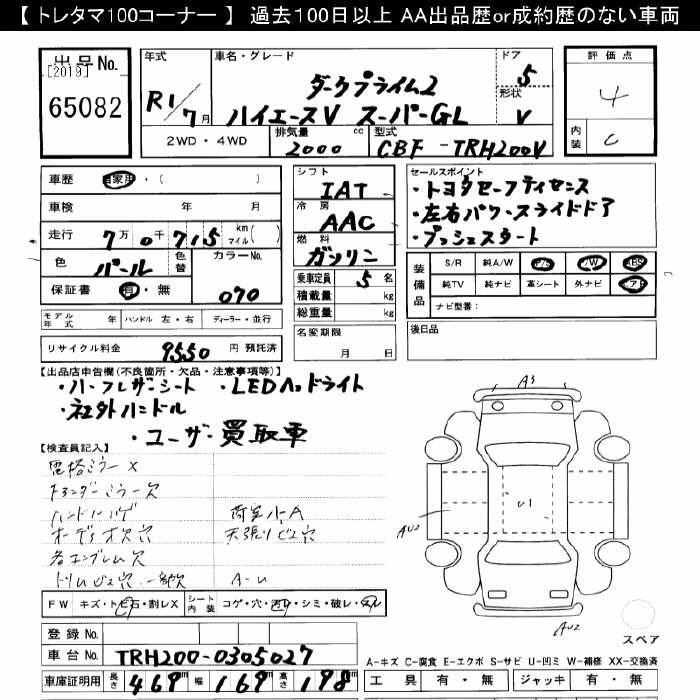 【 トレタマ100コーナー 】 過去100日以上 AA出品歴or成約歴のない車両
出品No.
[2019]
65082
年式
R1/7月
車名・グレード
ダークプライム2
ハイエースV スーパーGL
ドア
5
形状
V
評価点
4
内装
C
2WD・4WD
排気量
2000 cc
型式
CBF-TRH200V
車歴 自家用・( )
車検 年 月
走行 7万0千715 km マイル( )
色 パール 色替
カラーNo.
070
保証書 有・無
モデル年式 年 ハンドル 左・右 ディーラー・並行
リサイクル料金 9550 円 預託済
シフト
IAT
冷房
AAC
燃料
ガソリン
乗車定員 5 名
積載量 kg
総重量 kg
名変期限
月 日
セールスポイント
・トヨタセーフティセンス
・左右パワースライドドア
・プッシュスタート
装備品
S/R 純A/W P/S P/W ABS
純TV 純ナビ 革シート 外ナビ エアB
ナビ型番:
後日品
【出品店申告欄(不良箇所・欠品・注意事項等)】
・ハーフレザーシート ・LEDヘッドライト
・社外ハンドル
・ユーザー買取車
【検査員記入】
電格ミラーX
アンダーミラー欠
ハンドルハゲ
オーディオ欠穴
各エンブレム欠
トリムビス穴 一部欠
荷室小A
天張りビス穴
A-U
A3
U1
AU2
AU2
スペア
FW キズ・トビ石・割レX シート内装 コゲ・穴・汚レ・シミ・破レ・スレ
登録No.
車台No. TRH200-0305027
車庫証明用 長さ 469 m 幅 169 m 高さ 198 m
A-キズ C-腐食 E-エクボ S-サビ U-凹ミ W-補修 XX-交換済
工具 有・無 ジャッキ 有・無